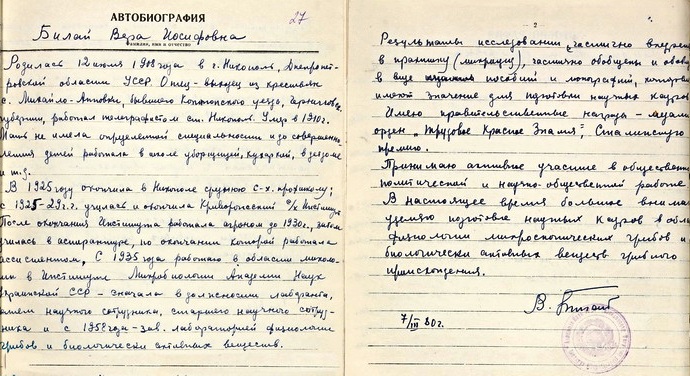 АВТОБИОГРАФИЯ
27
Билай Вера Иосифовна
фамилия, имя и отчество
Родилась 12 июля 1908 года в г. Никополь, Днепропет-
ровской области УССР. Отец - выходец из крестьян
с. Михайло-Анновки, бывшего Конотопского уезда, Чернигов
губернии, работал телеграфистом ст. Никополь. Умер в 1910 г.
Мать не имела определенной специальности и до совершенно
летия детей работала в школе уборщицей, кухаркой, в
и т.д.
В 1925 году окончила в Никополе среднюю с.-х. профшколу;
с 1925-29 г. училась и окончила Криворожский Институт
После окончания Института работала агроном до 1930 г., затем
училась в аспирантуре, по окончании которой работала
ассистентом, С 1935 года работаю в области миколо-
в Институте Микробиологии Академии Наук
Украинской ССР - сначала в должности лаборанта,
затем научного сотрудника, старшего научного сотруд-
ника и с 1958 года - зав. лабораторией физиологии
грибов и биологически активных веществ.
2
Результаты исследований частично внедрен
в практику (микроцид), частично обобщены и
в виде пособий и монографий, которые
имеют значение для подготовки научных кадров
Имею правительственные награды - медали
орден "Трудовое Красное Знамя", Сталинскую
премию.
Принимаю активное участие в общественно
политической и научно-общественной работе
В настоящее время большое внима
уделяю подготовке научных кадров в обла
физиологии микроскопических грибов и
биологически активных веществ грибного
происхождения.
В. Билай
7/III 60 г.